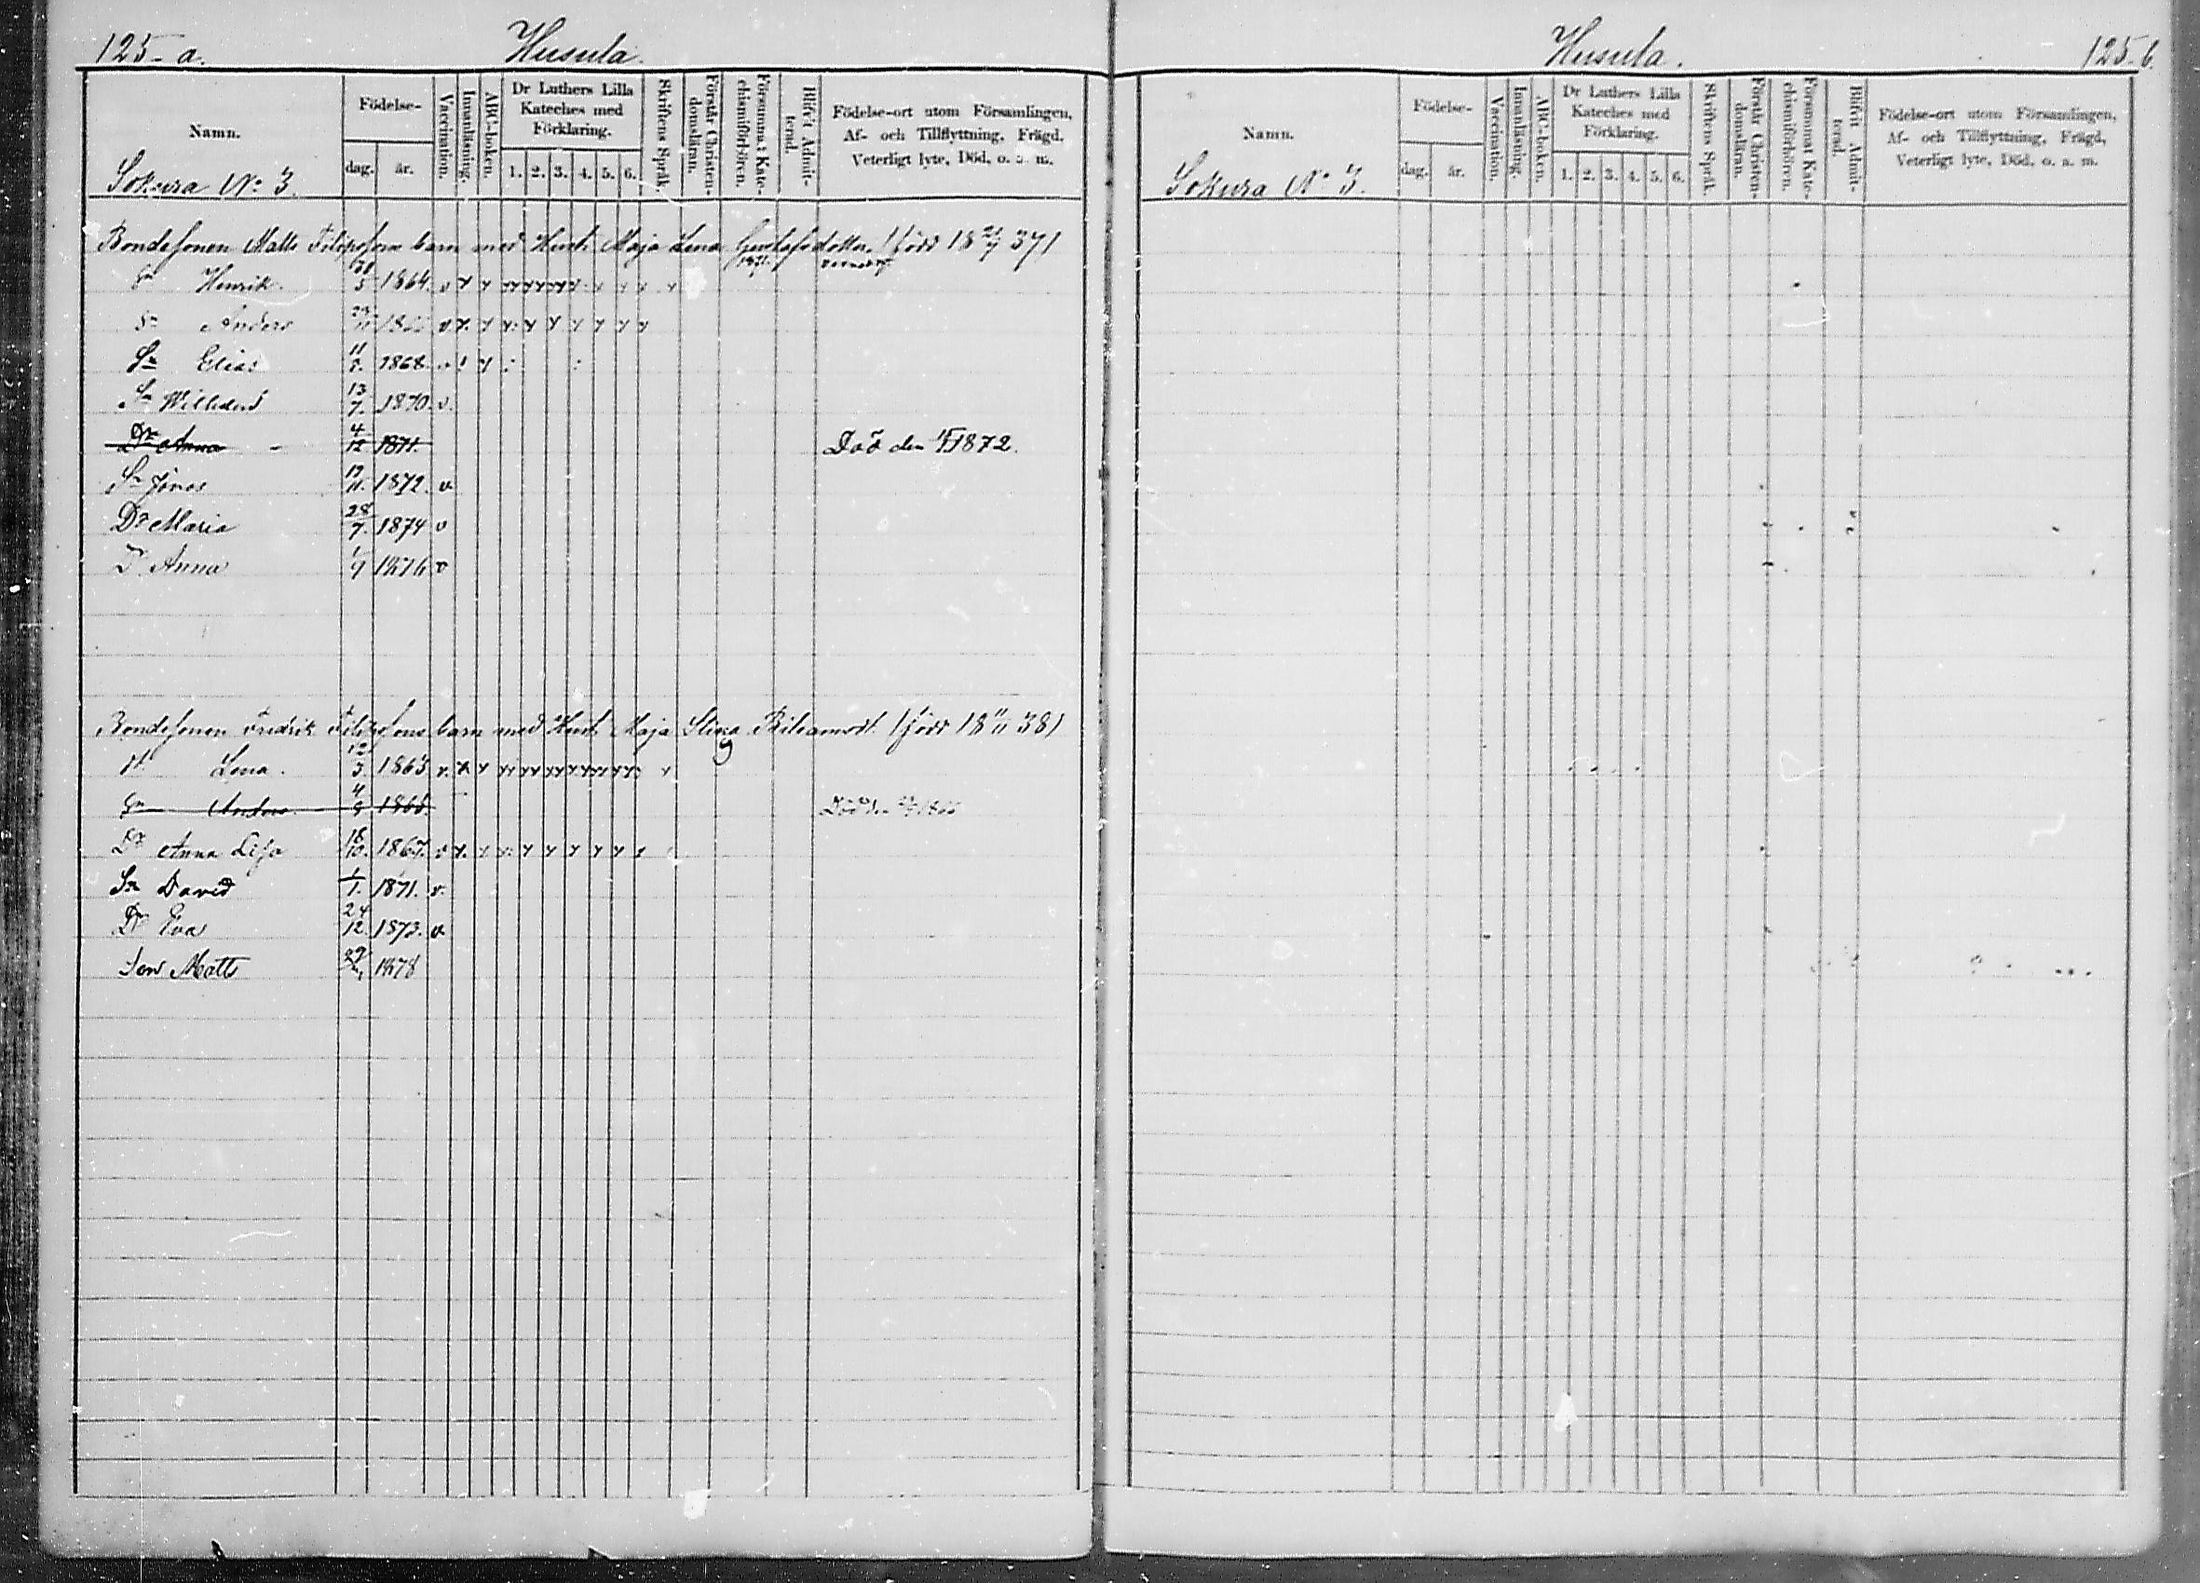 125-a.
Husula.
Namn.
Födelse-
dag.
år.
Vaccination.
Innanläsning.
ABC-boken.
Dr Luthers Lilla
Kateches med
Förklaring.
1. 2. 3. 4. 5. 6.
Skriftens Språk.
Förstår Christen-
domsläran.
Försumma t Kate-
chismiförhören.
Blifvit Admit-
terad.
Födelse-ort utom Församlingen,
Af- och Tillflyttning, Frägd,
Veterligt lyte, Död, o. a. m.
Sokura No 3.
Bondesonen Matts Filipsons barn med Hust. Maja Lena Gustafsdotter (född 18 21/7 37)
Sn Henrik. 30/5 1864. v
Sn Anders v
Sn Elias 1868 v
Sn Wilhelm 13/7. 1870. v.
Dr Anna - 4/12 1871. Död den 1872.
Sn Jonas 19/11. 1872. v
Dr Maria 28/7. 1874 v
Dr Anna 1/9 1876 v
Bondesonen Fredrik Filipsons barn med Hust. Maja Stina (född 18 11/11 38)
dt. Lena. 12/3. 1863 v.
Sn Anders 4/9 Död den
Dr Anna Lisa 18/10. 1867. v
Sn David 1/1. 1871. v.
Dr Eva 24/12. 1873. v
Son Matts 1878
Husula.
125-b.
Namn.
Födelse-
dag.
år.
Vaccination.
Innanläsning.
ABC-boken.
Dr Luthers Lilla
Kateches med
Förklaring.
1. 2. 3. 4. 5. 6.
Skriftens Språk.
Förstår Christen-
domsläran.
Försummat Kate-
chismiförhören.
Blifvit Admit-
terad.
Födelse-ort utom Församlingen,
Af- och Tillflyttning, Frägd,
Veterligt lyte, Död, o. a. m.
Sokura No 3.